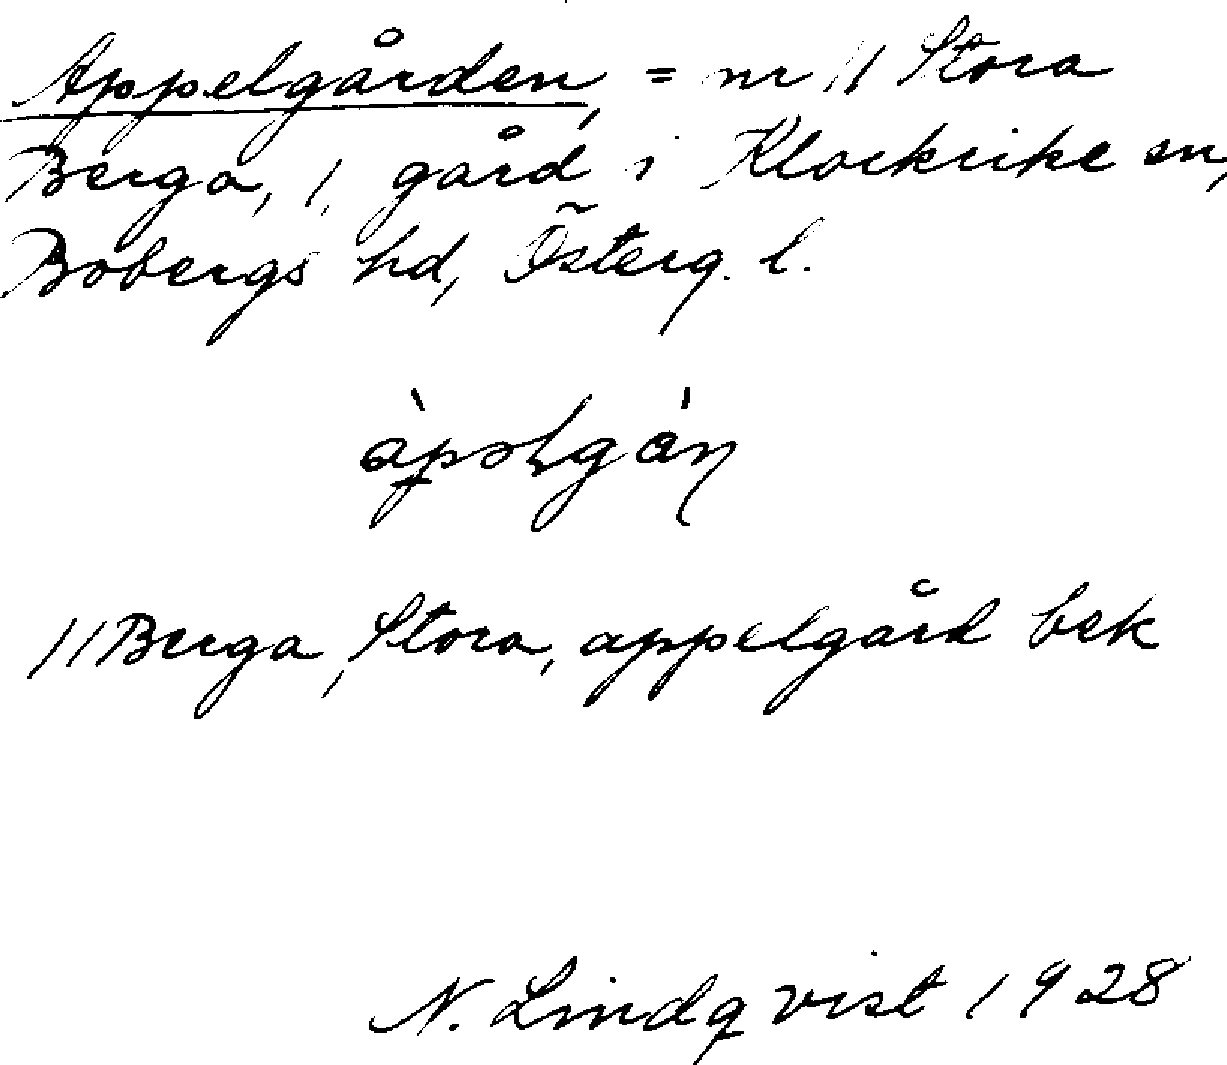 Appelgården, = nr 11 Stora
Berga, 1, gård i Klockrike sn,
Bobergs hd, Österg. l.
11 Berga, Stora, appelgård bek
N. Lindqvist 1928